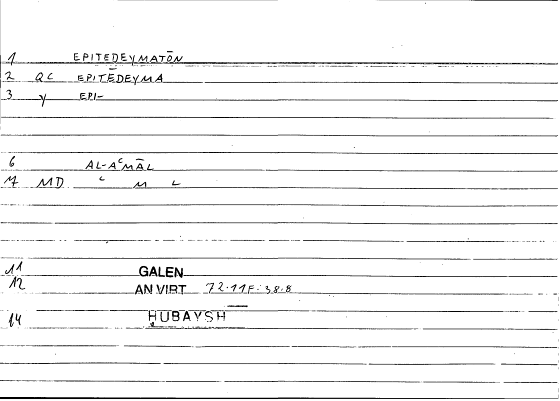 1 EPITEDEYMATŌN
2 QC EPITĒDEYMA
3 Y EPI-
6 AL-AʿMĀL
7 MD ʿ M L
11 GALEN
12 AN VIRT 72·11F·38·8
14 HUBAYSH